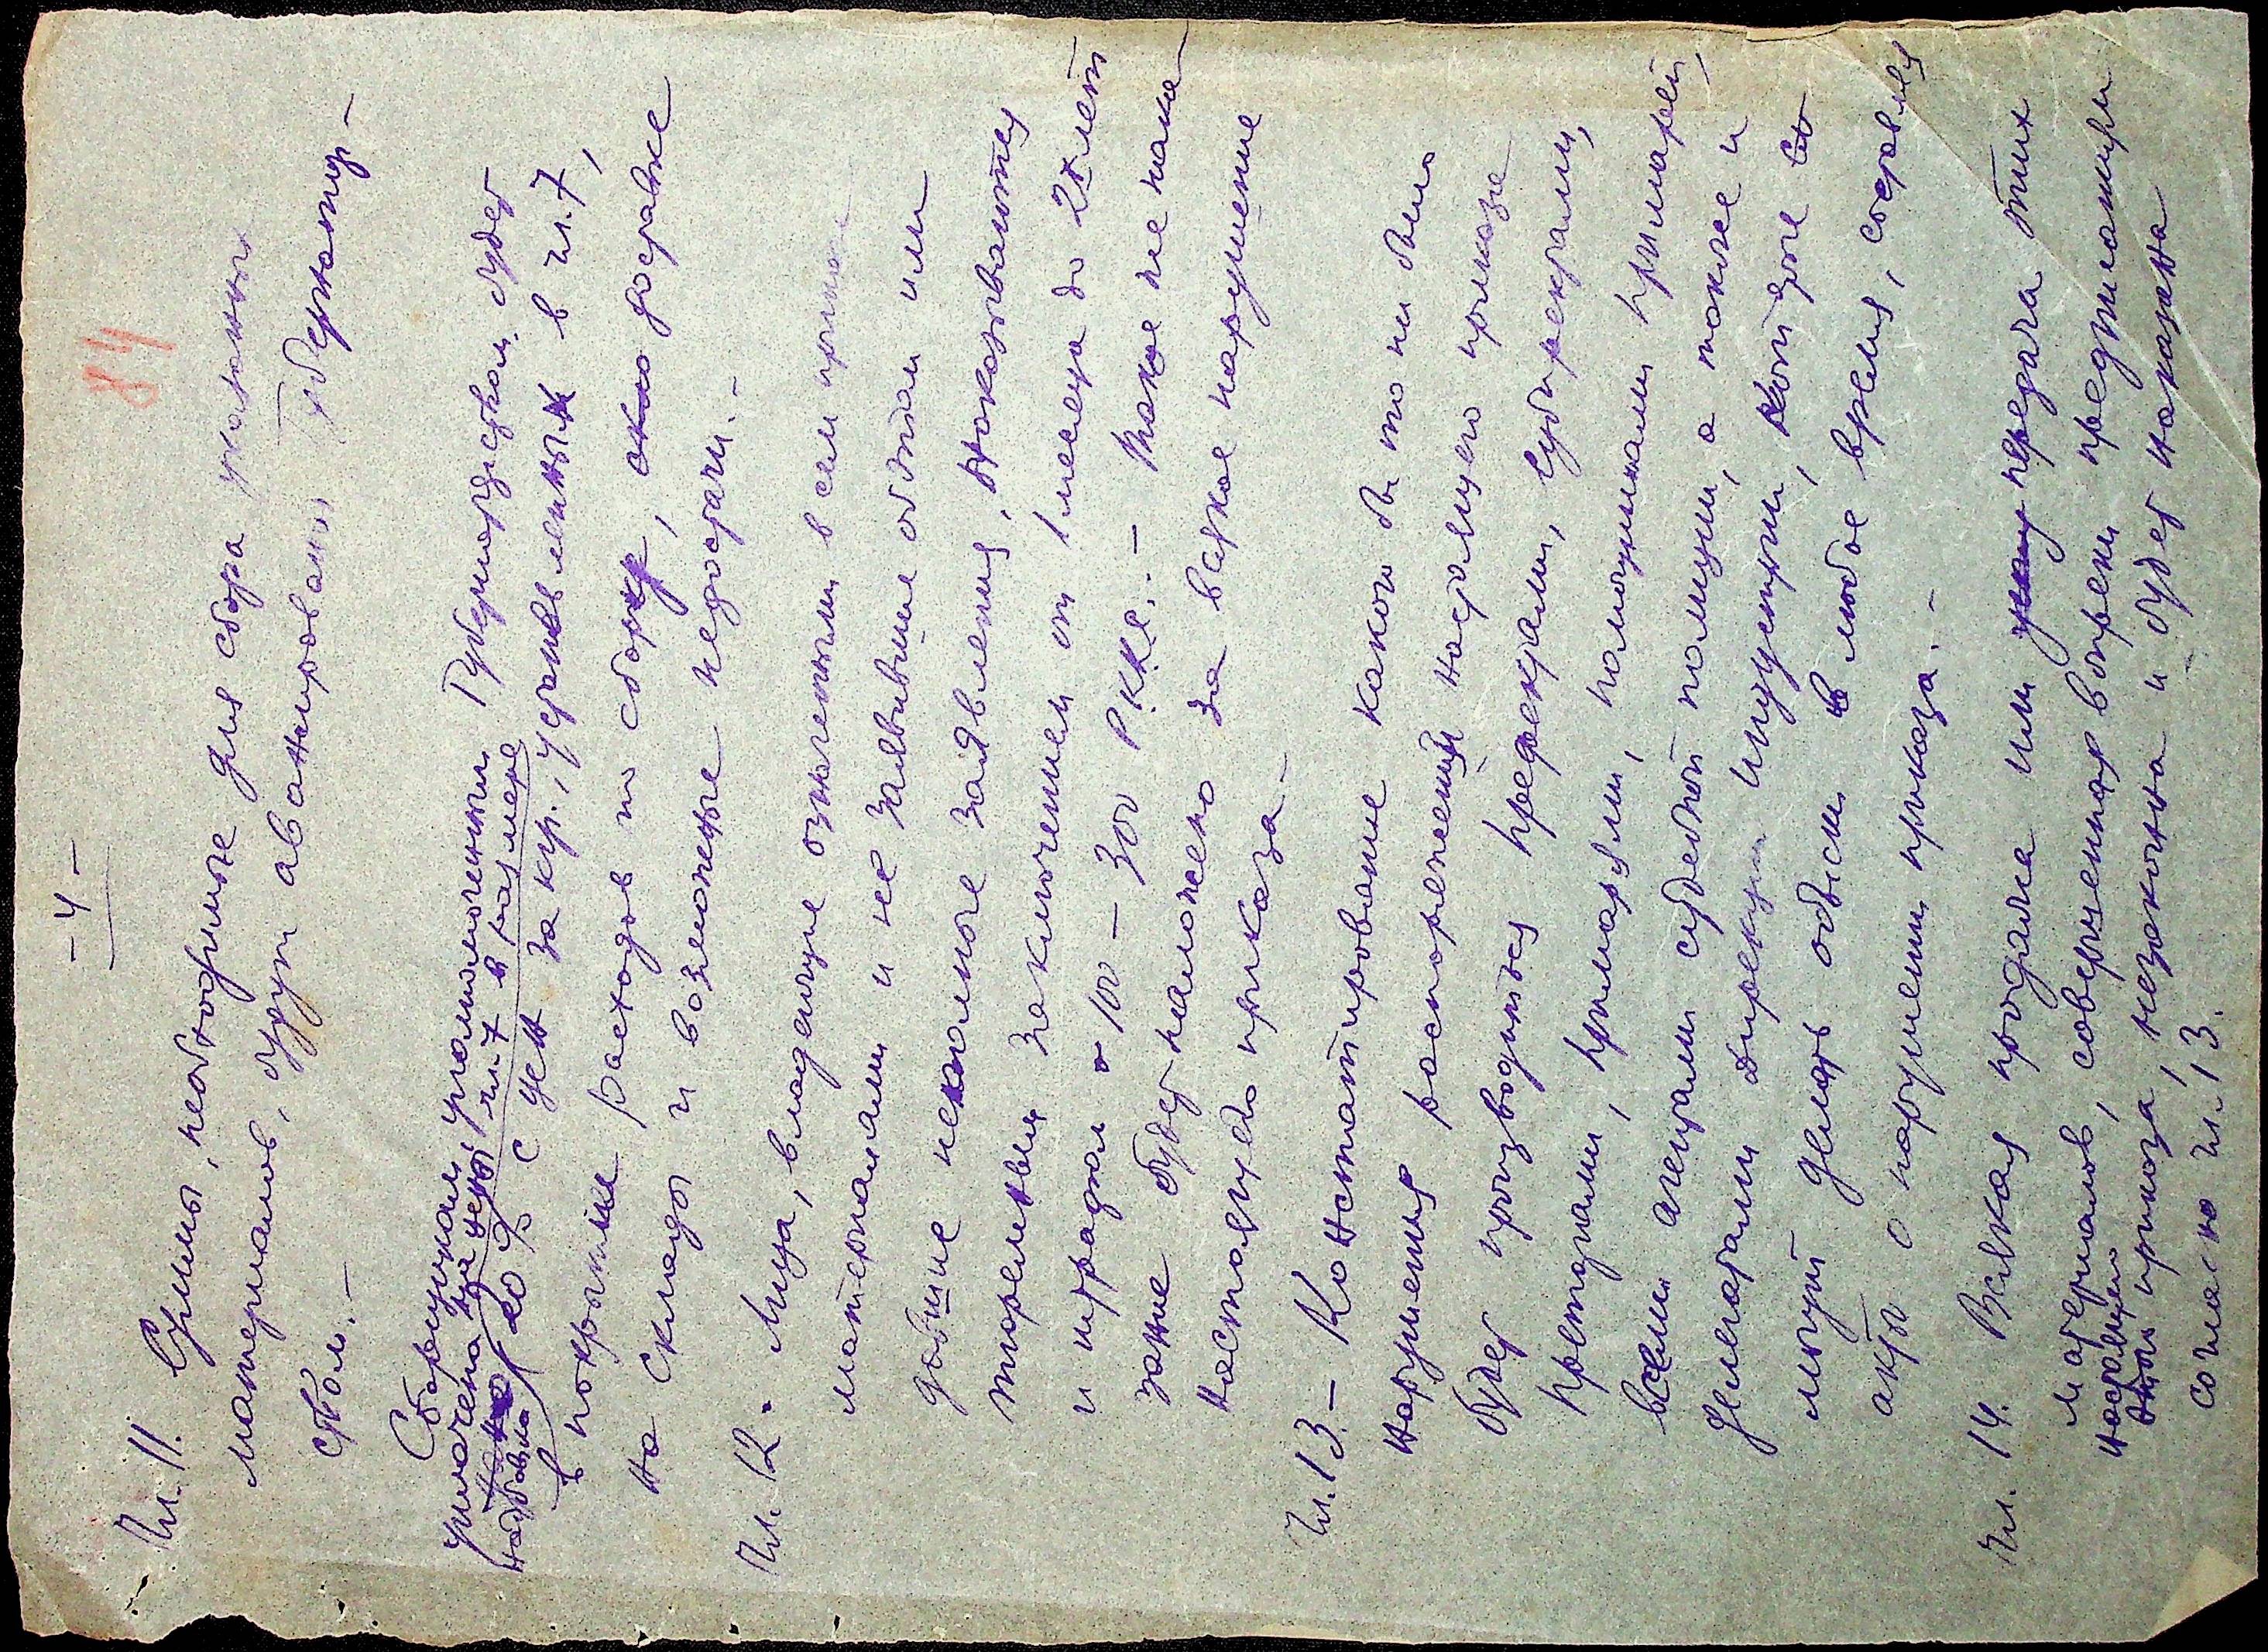 - 4 -
84
Чл. 11. Суммы, необходимые для сбора указанных
материалов, будут авансированы Губернатор-
ством.-
Сборщикам, уполномоченным Губернаторством будет
уплачена надбавка за цены чл. 7 в размере
20% с цен за кгр., установленных в чл. 7,
в покрытие расходов по сбору, по доставке
на склады и возможные недостачи.-
Чл. 12. Лица, владеющие означенными в сем приказе
материалами и не заявившие об этом или
давшие неполные заявления, наказываются
тюремным заключением от 1 месяца до 2х лет
и штрафом 100 - 300 РККЕ.- Такое же нака-
зание будет наложено за всякое нарушение
настоящего приказа.-
Чл. 13.- Констатирование какого бы то ни было
нарушения распоряжений настоящего приказа
будет производиться префектами, субпрефектами,
преторами, примарями, помощниками примарей,
всеми агентами судебной полиции, а также и
делегатами Дирекции индустрии, которые
могут делать обыски в любое время, составляя
акты о нарушении приказа.-
Чл. 14. Всякая продажа или передача этих
материалов, совершенная вопреки предписаниям
настоящего приказа, незаконна и будет наказана
согласно чл. 13.